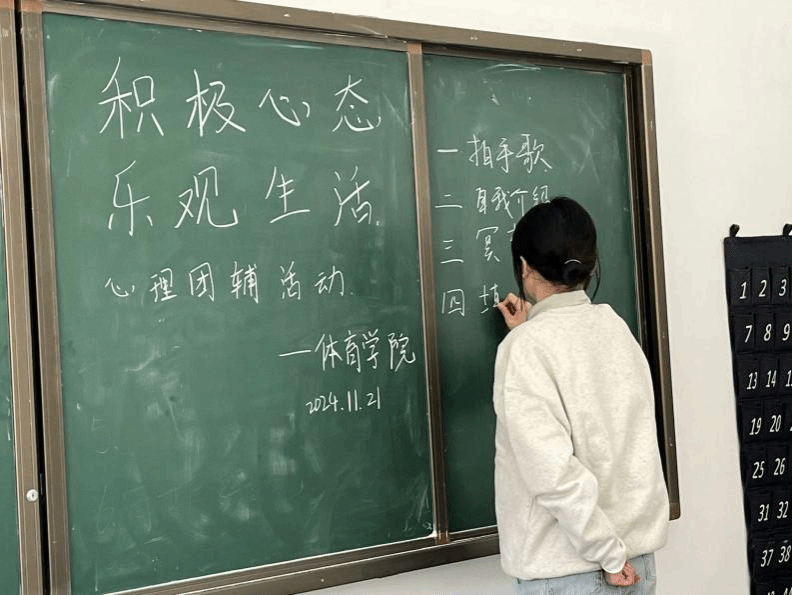 积极心态
乐观生活
心理团辅活动
一体育学院
2024.11.21
一 拍手歌
二 自我介绍
三 冥
四 填
1 2 3
7 8 9
13 14
19 20
25 26
31 32
37 38